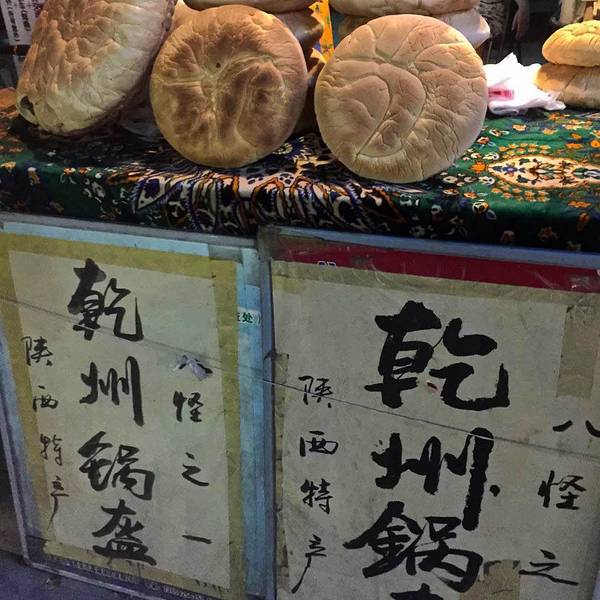 八怪之一
乾州锅盔
陕西特产
八怪之
乾州鍋
陕西特产